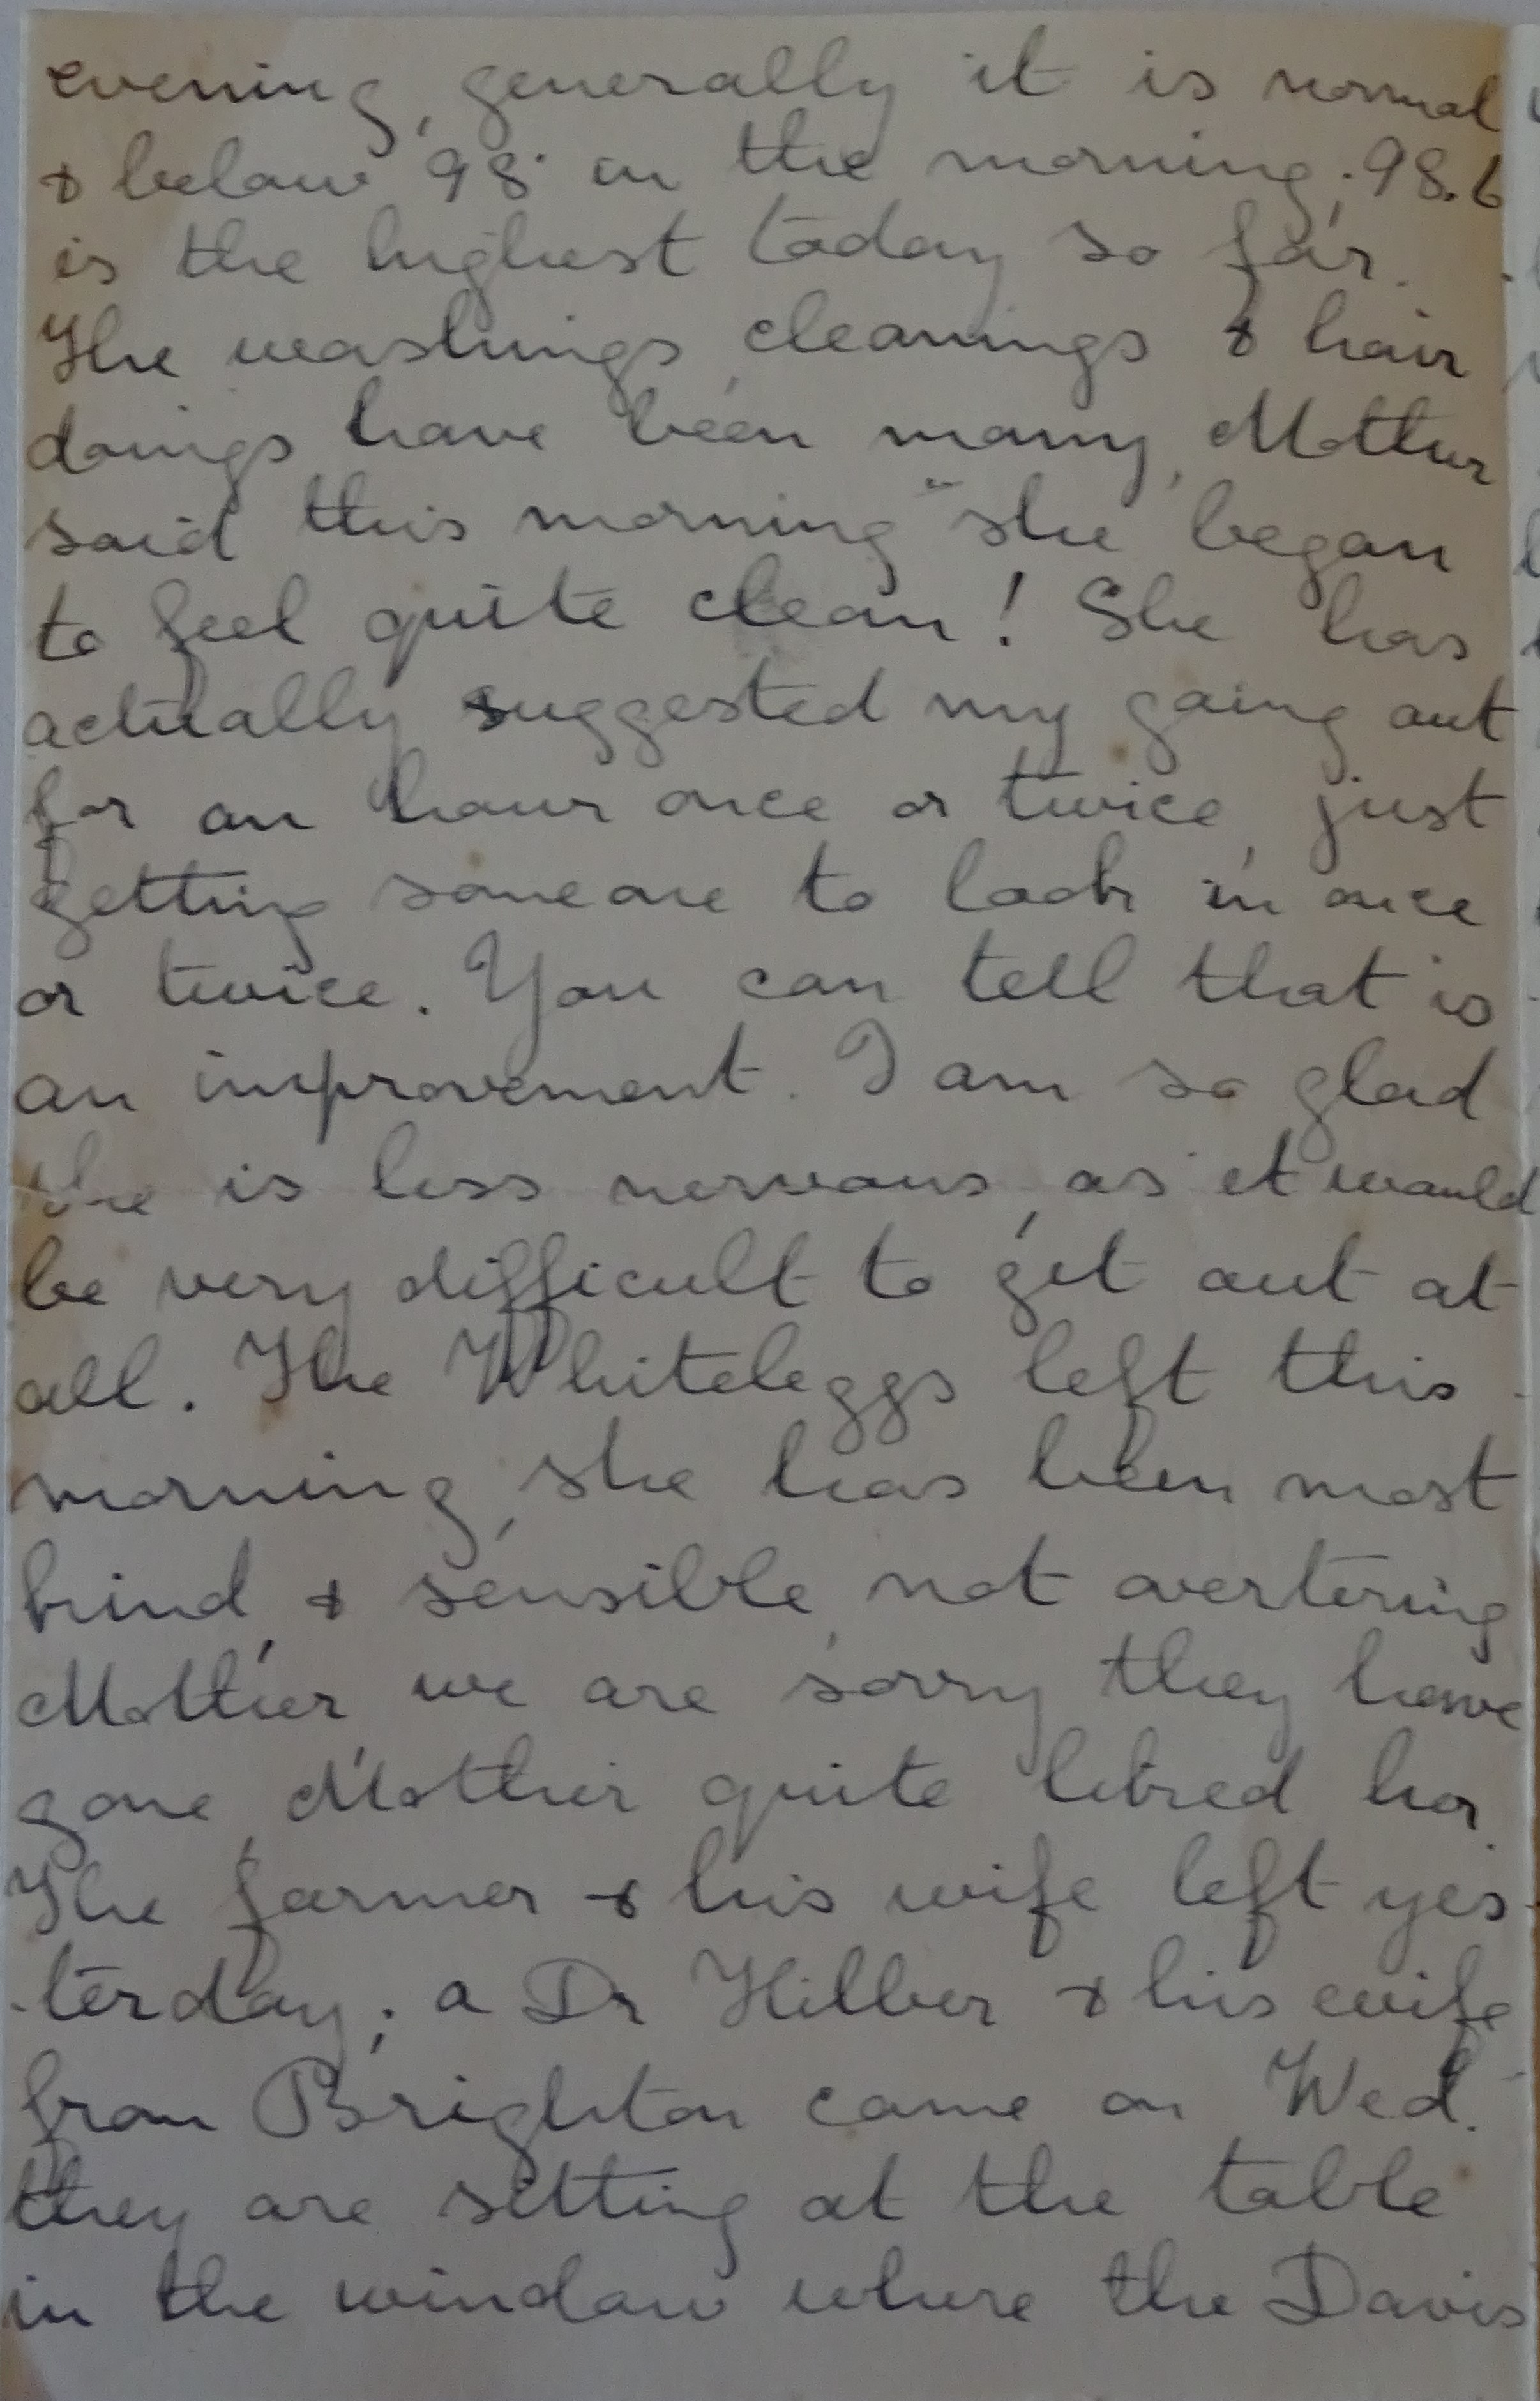 evening, generally it is normal
& below 98° in the morning; 98.6
is the highest today so far.
The washings, cleanings & hair
doings have been many, Mother
said this morning "she began
to feel quite clean! She has
actually suggested my going out
for an hour once or twice, just
getting someone to look in once
or twice. You can tell that is
an improvement. I am so glad
she is less nervous, as it would
be very difficult to get out at
all. The Whiteleggs left this
morning, she has been most
kind, & sensible, not overtiring
Mother, we are sorry they have
gone, Mother quite liked her.
The farmer & his wife left yes-
-terday; a Dr Hilber & his wife
from Brighton came on Wed.
they are sitting at the table
in the window where the Davis